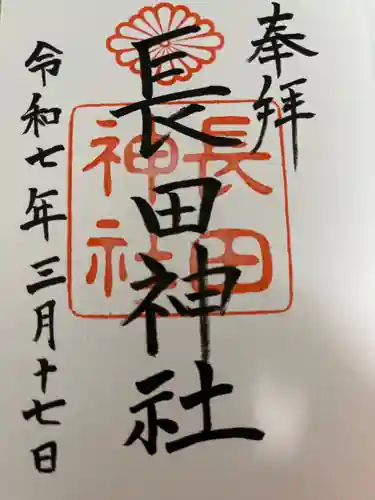 奉拝
長田神社
長田
神社
令和七年三月十七日